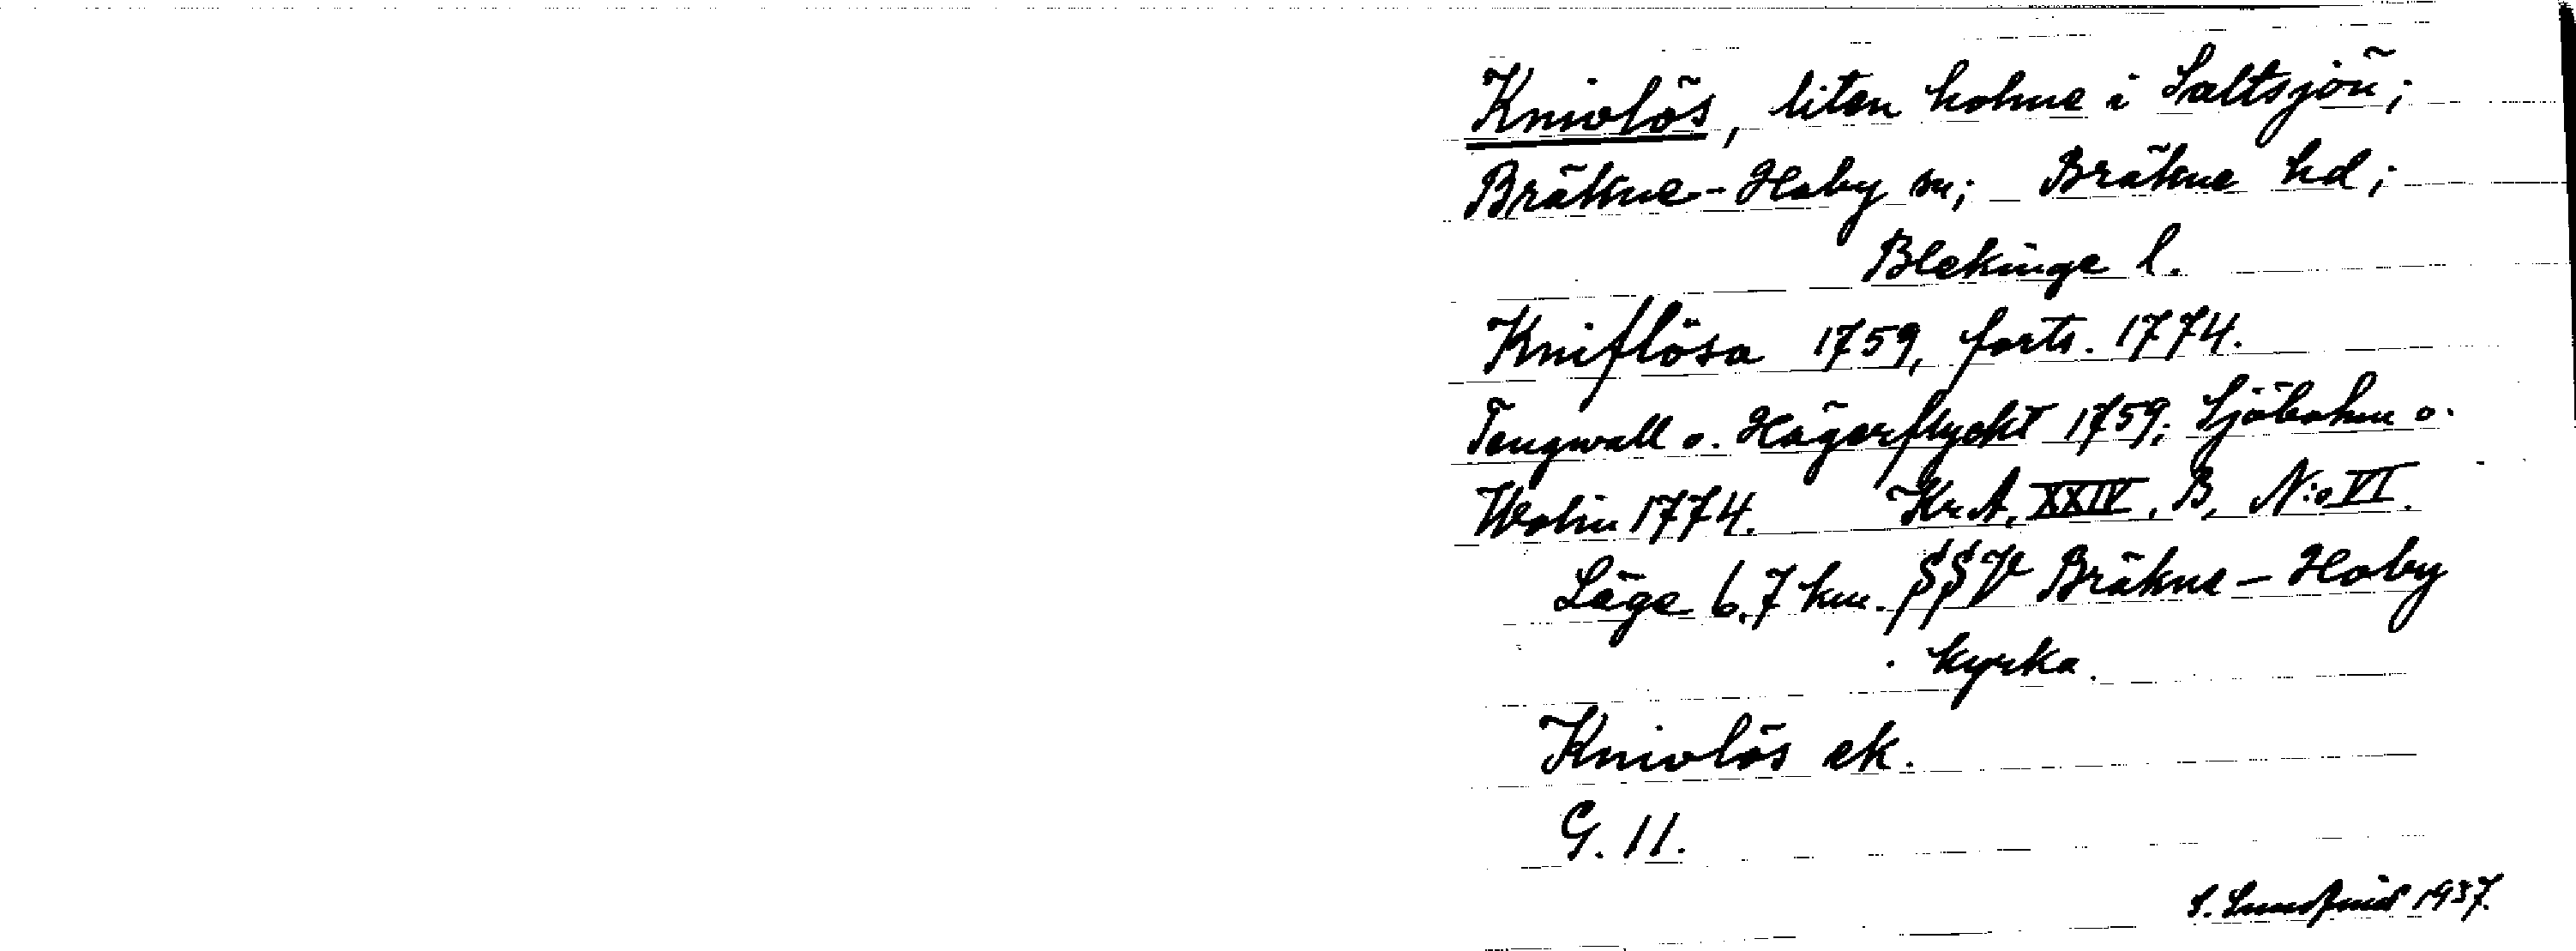 Knivlös, liten holme i Saltsjön;
Bräkne-Hoby sn; Bräkne hd;
Blekinge l.
Kniflösa 1759, forts. 1774.
Tengwall o. Hägerflyckt 1759; Sjöbohm o.
Wolin 1774. Kr.A. XXIV, B, N:o VI.
Läge 6,7 km. SSV Bräkne-Hoby
kyrka.
Knivlös ek.
G. 11.
1937.